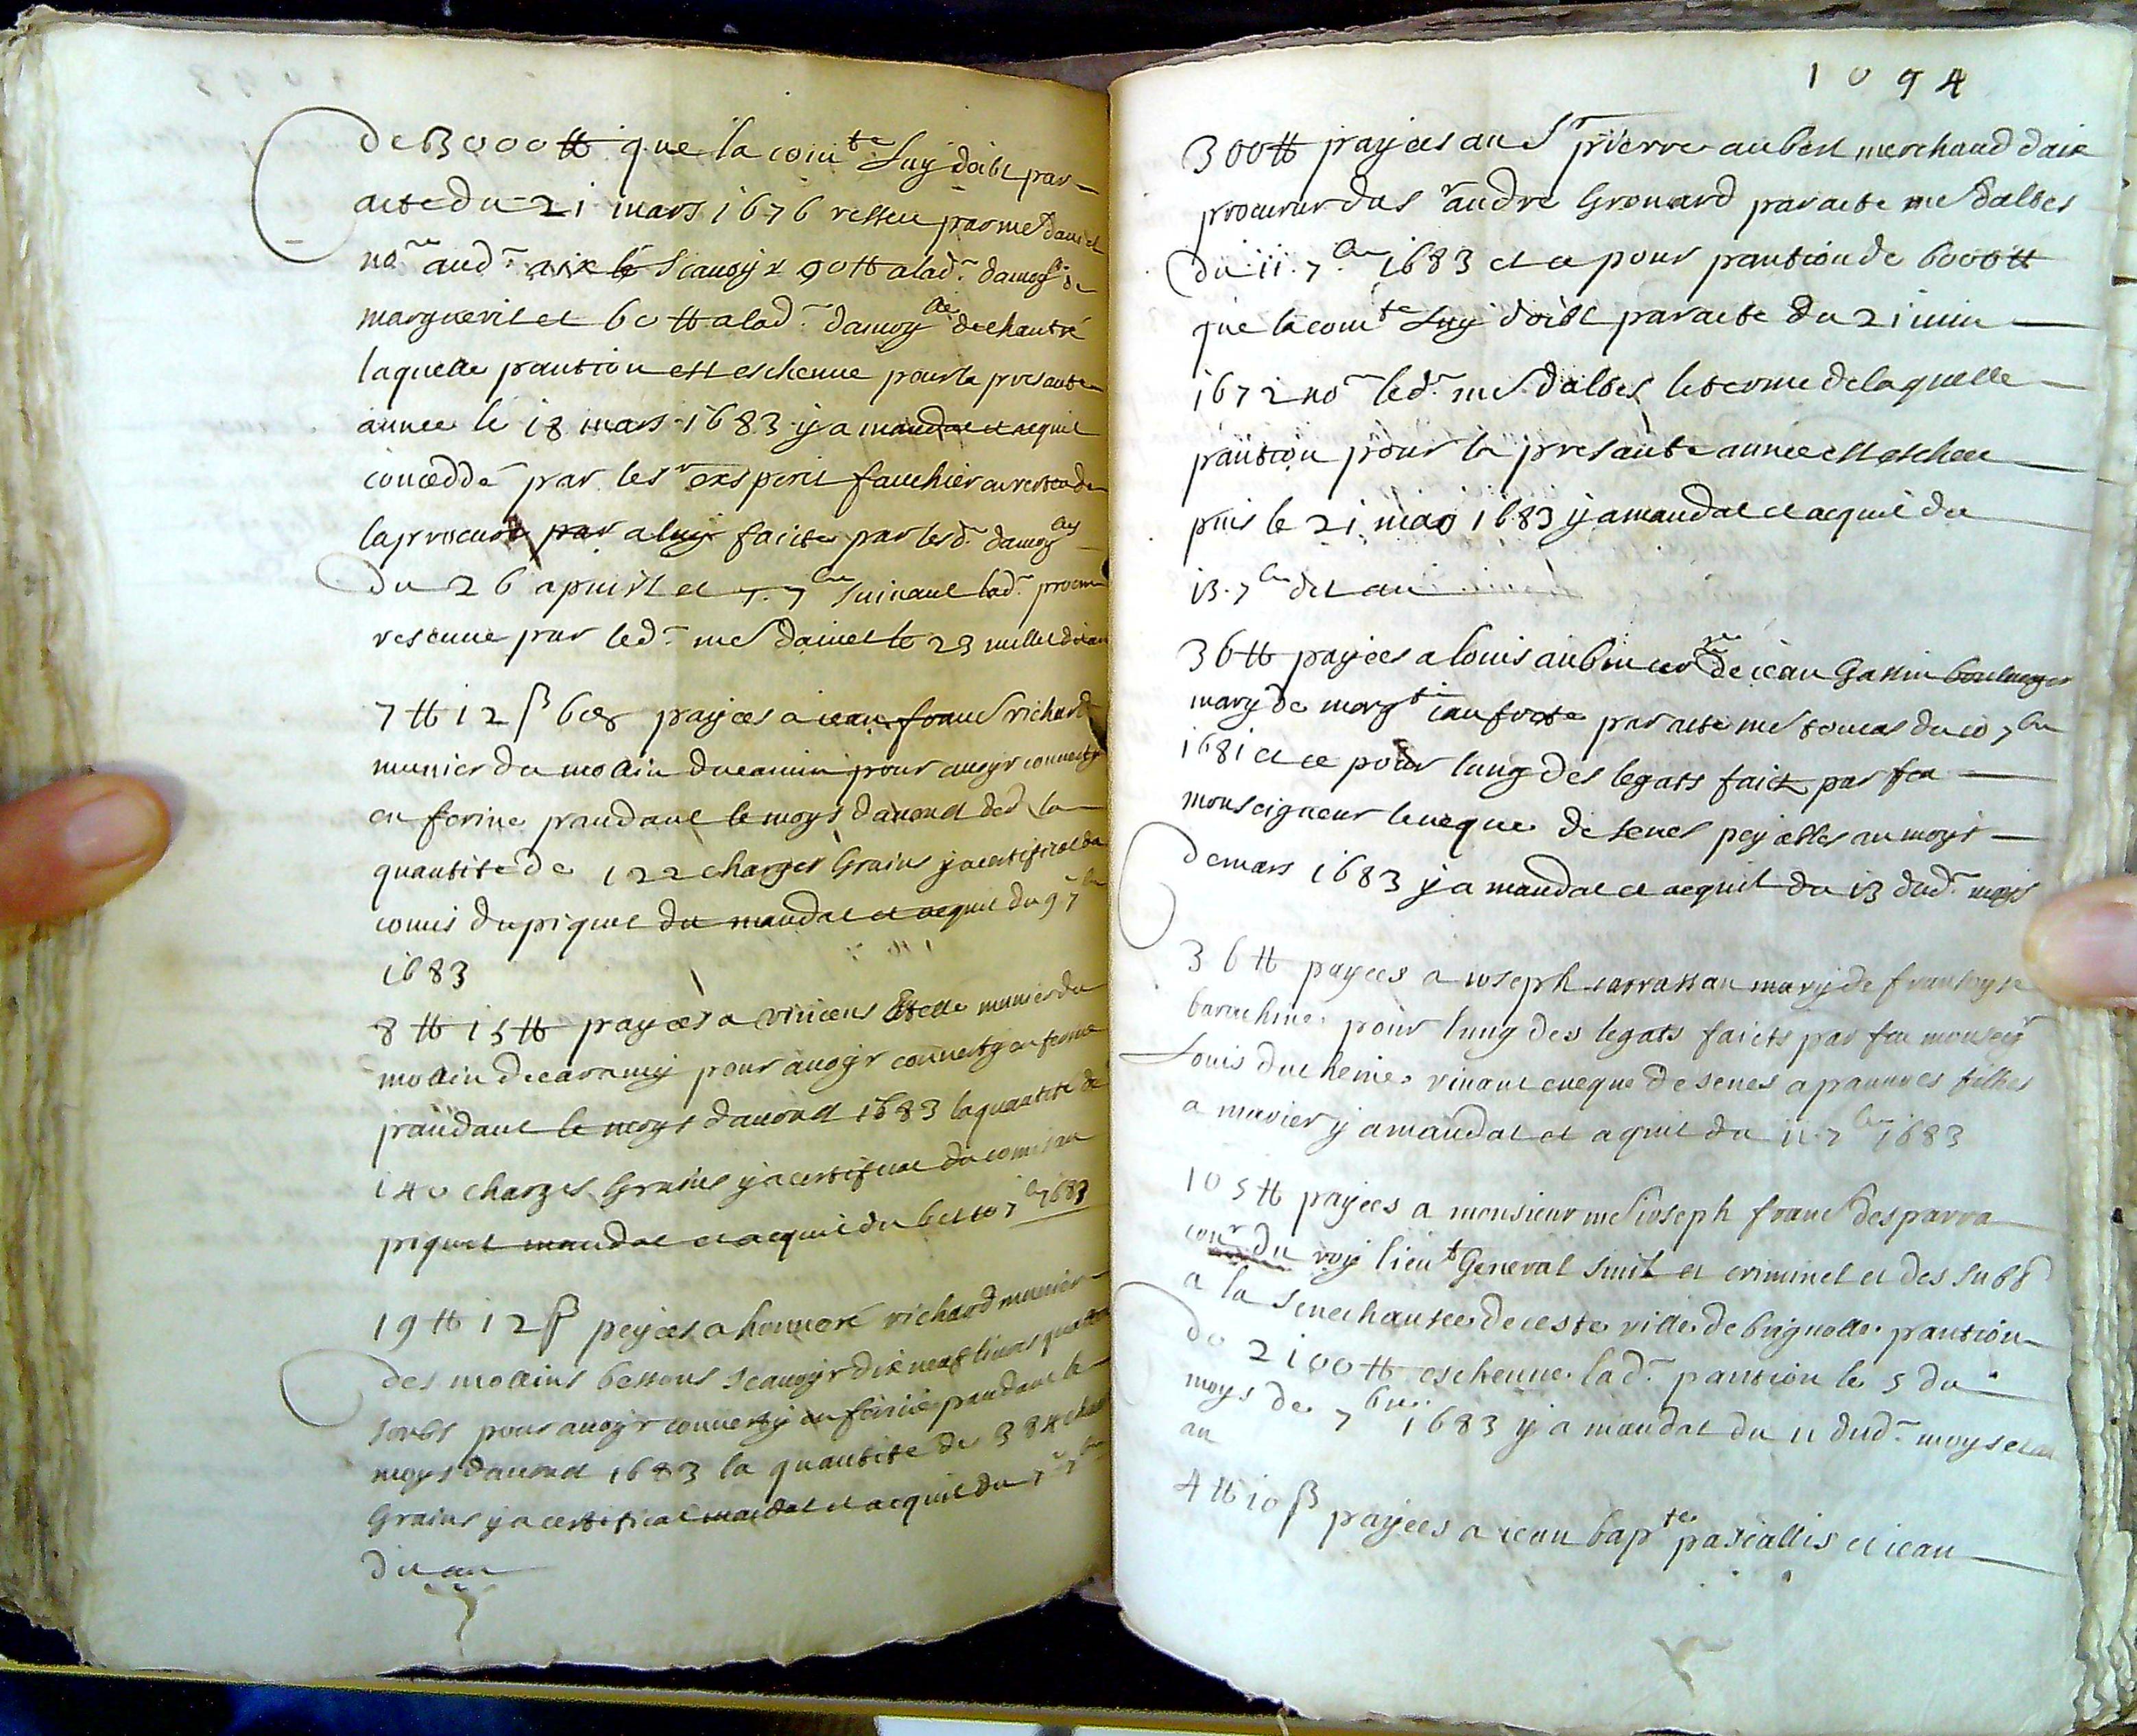 de 3000 ₶ que la com.te luy doibt par
acte du 21 mars 1676 resseu par me daniel
no.re aud. aix scauoyr 90 ₶ a lad. damoy.lle de
marguerit et 60 ₶ a lad. damoy.lle de chautré
laquelle pantion est escheue pour la presante
annee le 18 mars 1683 y a mandat et aquit
conceddé par les rs exsperit fauchier en vertu de
la procure par a luy faicte par lesd. damoy.lles
du 26 apuril et 7.bre suiuant lad. procure
resceue par led. me daniel le 23 nullet dit an
7 ₶ 12 ß 6 ds payees a iean franc richard
munier du mollin du camin pour auoyr conuerty
en farine prandant le moys d'auoust der la
quantité de 122 charges grains y a certifficat du
comis du piquet du mandat et aquit du 9 7.bre
1683
8 ₶ 15 ₶ payees a vincens Estelle munier du
mollin de caramy pour auoyr conuerty en farine
prandant le moys d'auoust 1683 la quantité de
140 charges grains y a certifficat du comis au
piquet mandat et acquit du 6 et 10 7.bre 1683
19 ₶ 12 ß peyees a honnoré richard munier
des mollins bessons scauoyr dix neuf liures quatorze
soubs pour auoyr conuerty en farine prandant le
moys d'auoust 1683 la quantité de 384 charges
grains y a certifficat mandat et acquit du 7 7.bre
dit an
1094
300 ₶ payees au Sr pierre aubert merchand d'aix
procureur du sr andre Grouard par acte me dalbes
du 11 7.bre 1683 et ce pour pantion de 6000 ₶
que la com.te luy doibt par acte du 21 iuin
1672 no.re led. me dalbes le terme de laquelle
pantion pour la presante annee est escheu
puis le 21 mao 1683 y a mandat et acquit du
13 7.bre dit an
36 ₶ payees a louis aubin cer.re de iean Gassin boulanger
mary de marg.te iaufrete par acte me tomas du 10 7.bre
1681 et ce pour lung des legats faict par feu
monseigneur leueque de senes peyables au moys
de mars 1683 y a mandat et acquit du 13 dud. moys
36 ₶ payees a ioseph carrassan mary de fransoyse
barrachine pour lung des legats faicts par feu monseigr
Louis duchenne viuant eueque de senes a pauures filhes
a marier y a mandat et aquit du 11 7.bre 1683
105 ₶ payees a monsieur me ioseph franc desparra
con.r du roy lieu.t General siuil et criminel et des sub.s
a la senechaussee de ceste ville de brignolle pantion
de 2100 ₶ escheue lad. pantion le 5 du
moys de 7.bre 1683 y a mandat du 11 dud. moys et
an
4 ₶ 10 ß payees a iean bap.te pascallis et iean